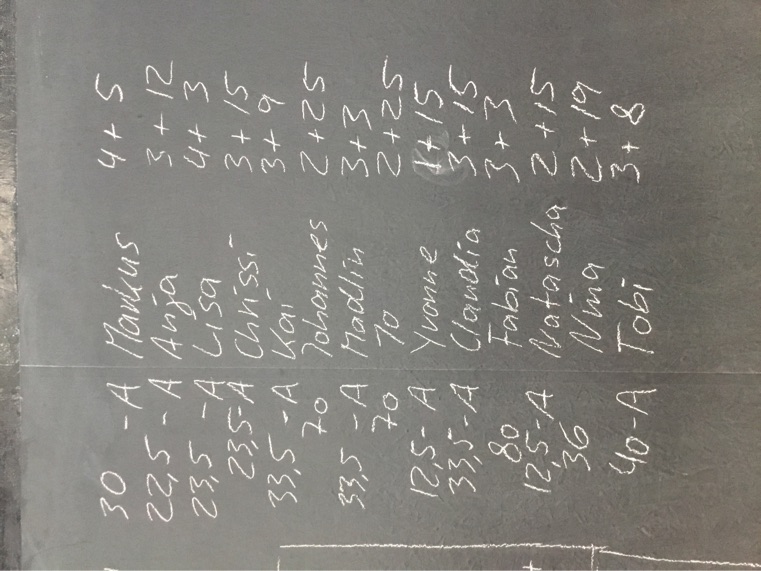 30 -A Markus 4 + 5
22,5 -A Anja 3 + 12
23,5 -A Lisa 4 + 3
23,5-A Chrissi 3 + 15
33,5 -A Kai 3 + 9
70 Johannes 2 + 25
33,5 -A Madlin 3 + 3
70 Jo 2 + 25
12,5 -A Yvonne 1 + 15
33,5 -A Claudia 3 + 15
80 Fabian 3 + 3
12,5-A Natascha 2 + 15
36 Nina 2 + 19
40-A Tobi 3 + 8